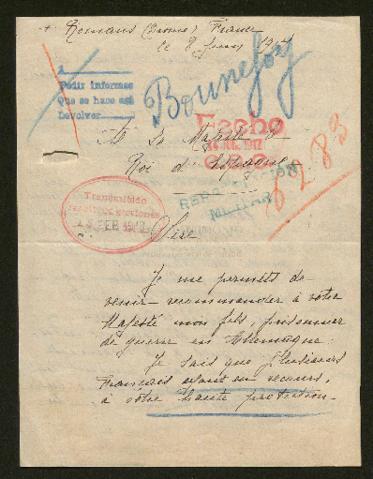 + Romans (Drome) France
le 8 Juin 1917
Pedir informes
Que se haga así
Devolver
Bonnefoy
Fecho
1917
A Sa Majesté le
Roi d'Espagne
6283
MILITAR
Transmitido
FEB
Sire
Je me permets de
venir recommander à votre
Majesté mon fils, prisonnier
de guerre en Allemagne.
Je sais que Plusieurs
Français ayant eu recours,
à votre haute protection